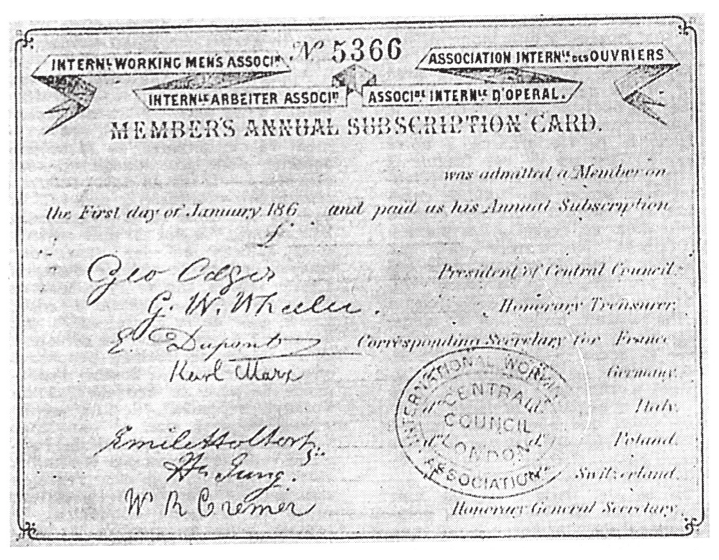 Nº 5366
INTERNL. WORKING MEN'S ASSOCIN.
ASSOCIATION INTERNLE. DES OUVRIERS
INTERNLE ARBEITER ASSOCIN
ASSOCINE. INTERNLE D'OPERAI.
MEMBER'S ANNUAL SUBSCRIPTION CARD.
was admitted a Member on
the First day of January 186 and paid as his Annual Subscription
Geo Odger President of Central Council.
G. W. Wheeler. Honorary Treasurer.
E. Dupont Corresponding Secretary for France
Karl Marx Germany.
Italy.
Emile Holtorp Poland.
H. Jung. Switzerland.
W R Cremer Honorary General Secretary.
INTERNATIONAL WORKING
CENTRAL
COUNCIL
LONDON
ASSOCIATION